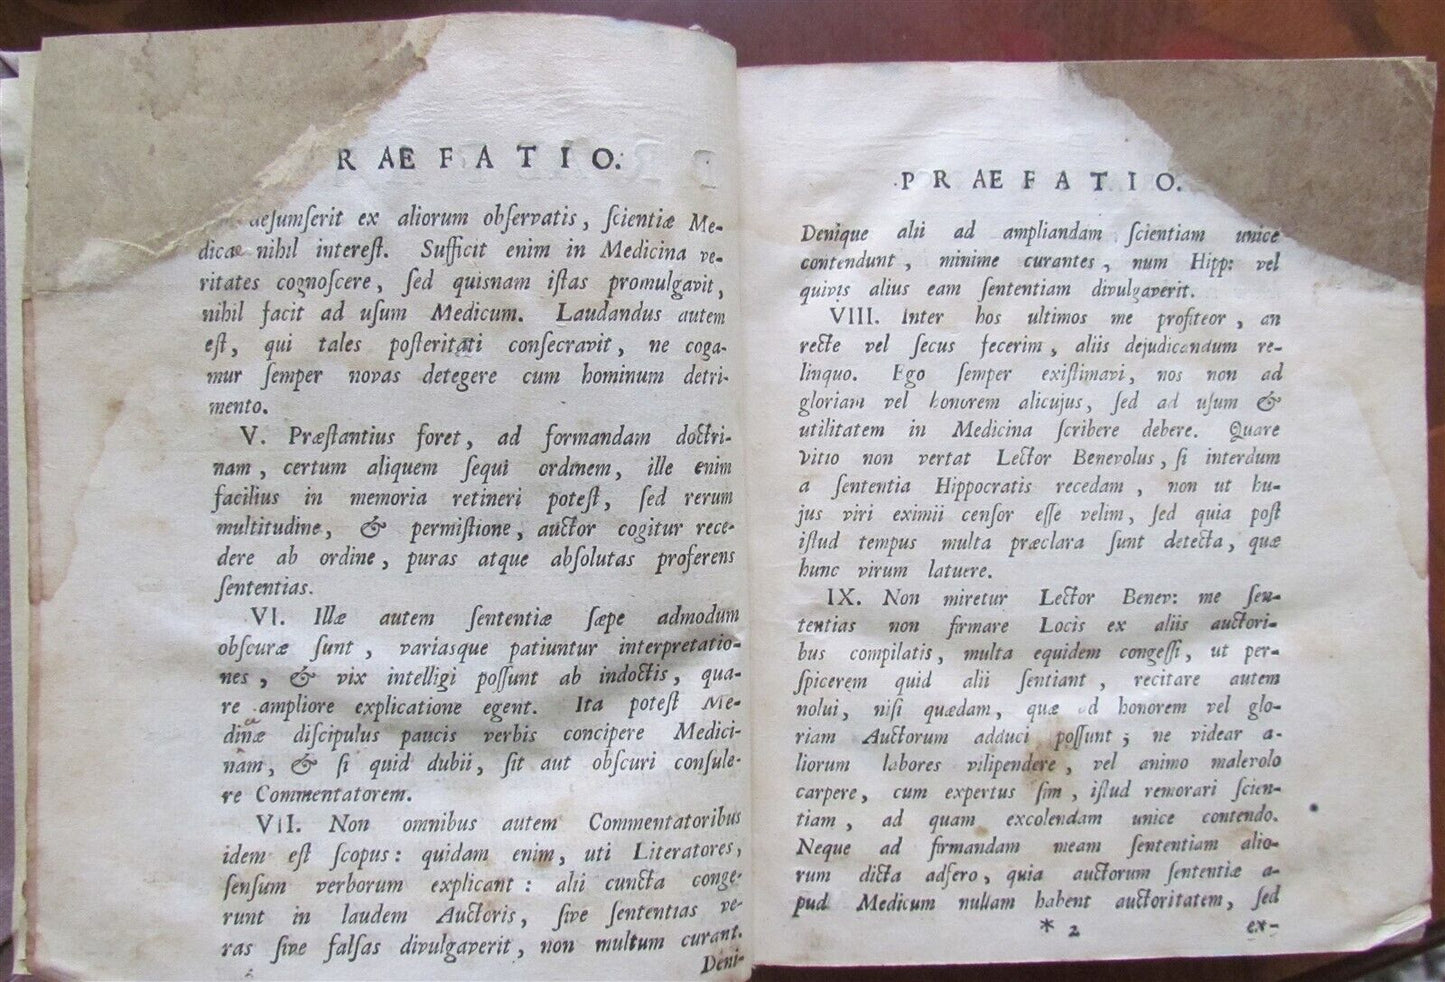 RAEFATIO.
desumserit ex aliorum observatis, scientiæ Me-
dicæ nihil interest. Sufficit enim in Medicina ve-
ritates cognoscere, sed quisnam istas promulgavit,
nihil facit ad usum Medicum. Laudandus autem
est, qui tales posteritati consecravit, ne coga-
mur semper novas detegere cum hominum detri-
mento.
V. Præstantius foret, ad formandam doctri-
nam, certum aliquem sequi ordinem, ille enim
facilius in memoria retineri potest, sed rerum
multitudine, & permistione, auctor cogitur rece-
dere ab ordine, puras atque absolutas proferens
sententias.
VI. Illæ autem sententiæ sæpe admodum
obscuræ sunt, variasque patiuntur interpretatio-
nes, & vix intelligi possunt ab indoctis, qua-
re ampliore explicatione egent. Ita potest Me-
dinæ discipulus paucis verbis concipere Medici-
nam, & si quid dubii, sit aut obscuri consule-
re Commentatorem.
VII. Non omnibus autem Commentatoribus
idem est scopus: quidam enim, uti Literatores,
sensum verborum explicant: alii cuncta conge-
runt in laudem Auctoris, sive sententias ve-
ras sive falsas divulgaverit, non multum curant.
Deni-
PRAEFATIO.
Denique alii ad ampliandam scientiam unice
contendunt, minime curantes, num Hipp: vel
quivis alius eam sententiam divulgaverit.
VIII. Inter hos ultimos me profiteor, an
recte vel secus fecerim, aliis dejudicandum re-
linquo. Ego semper existimavi, nos non ad
gloriam vel honorem alicujus, sed ad usum &
utilitatem in Medicina scribere debere. Quare
vitio non vertat Lector Benevolus, si interdum
a sententia Hippocratis recedam, non ut hu-
jus viri eximii censor esse velim, sed quia post
istud tempus multa præclara sunt detecta, quæ
hunc virum latuere.
IX. Non miretur Lector Benev: me sen-
tentias non firmare Locis ex aliis auctori-
bus compilatis, multa equidem congessi, ut per-
spicerem quid alii sentiant, recitare autem
nolui, nisi quædam, quæ ad honorem vel glo-
riam Auctorum adduci possunt; ne videar a-
liorum labores vilipendere, vel animo malevolo
carpere, cum expertus sim, istud remorari scien-
tiam, ad quam excolendam unice contendo.
Neque ad firmandam meam sententiam alio-
rum dicta adfero, quia auctorum sententiæ a-
pud Medicum nullam habent auctoritatem, sed
* 2 ex-